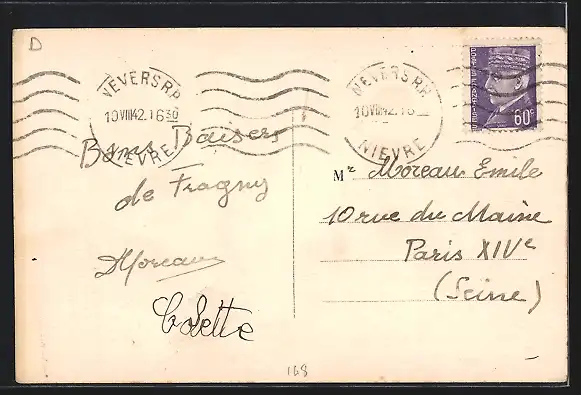 D
NEVERS R.P.
10 VIII 42.16 30
NIEVRE
NEVERS R.P.
10 VIII 42.16
NIEVRE
60c
Bons Baisers
de Fragny
DMoreau
Colette
Mr Moreau Emile
10 rue du Maine
Paris XIVe
(Seine)
168